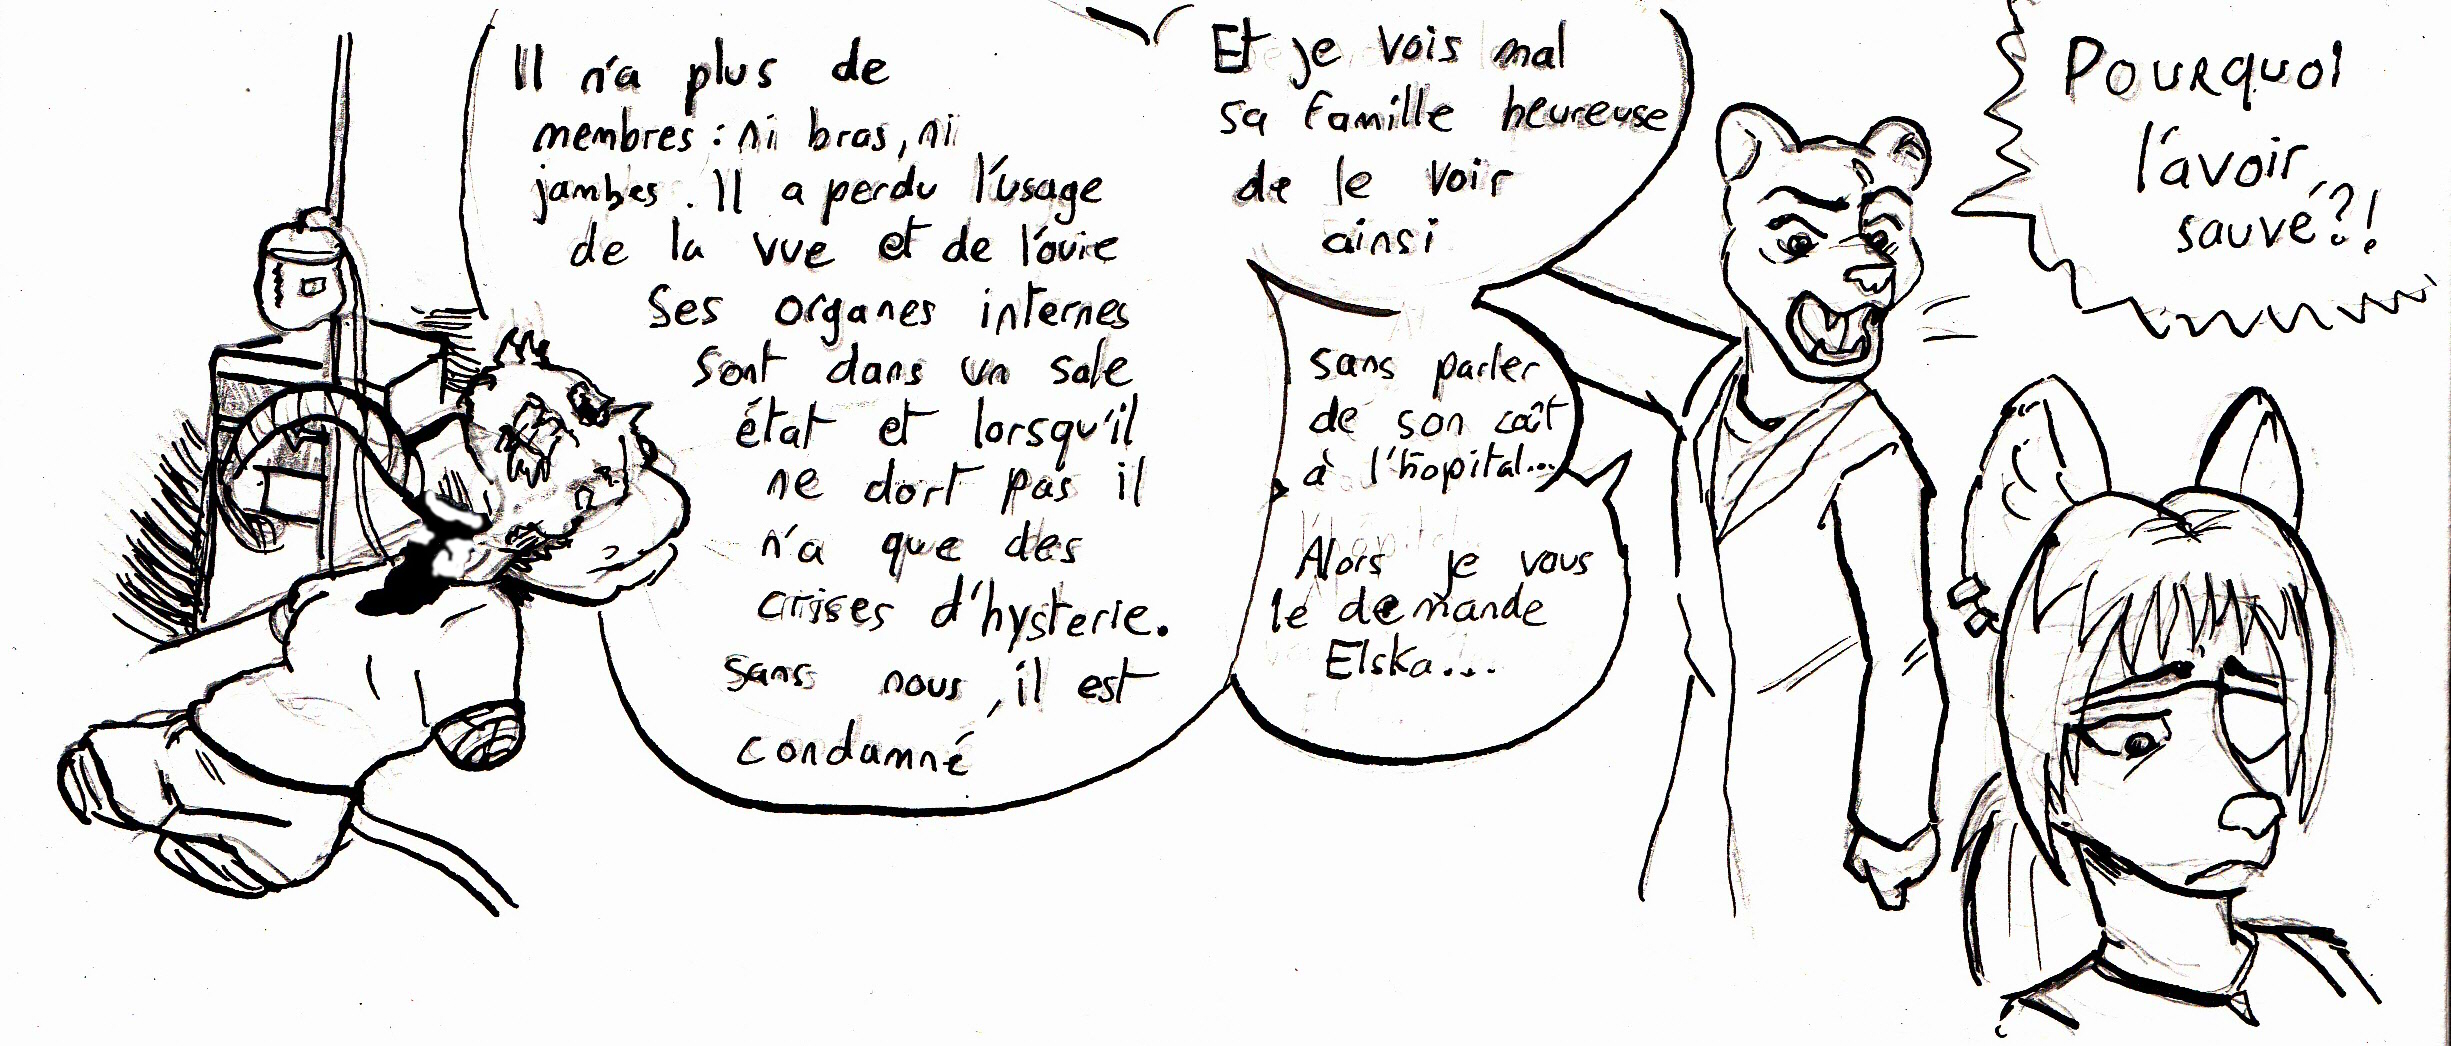 Il n'a plus de
membres : ni bras, ni
jambes. Il a perdu l'usage
de la vue et de l'ouïe
Ses organes internes
sont dans un sale
état et lorsqu'il
ne dort pas il
n'a que des
crises d'hysterie.
sans nous, il est
condamné
Et je vois mal
sa famille heureuse
de le voir
ainsi
sans parler
de son coût
à l'hopital...
Alors je vous
le demande
Elska...
POURQUOI
l'avoir
sauvé?!